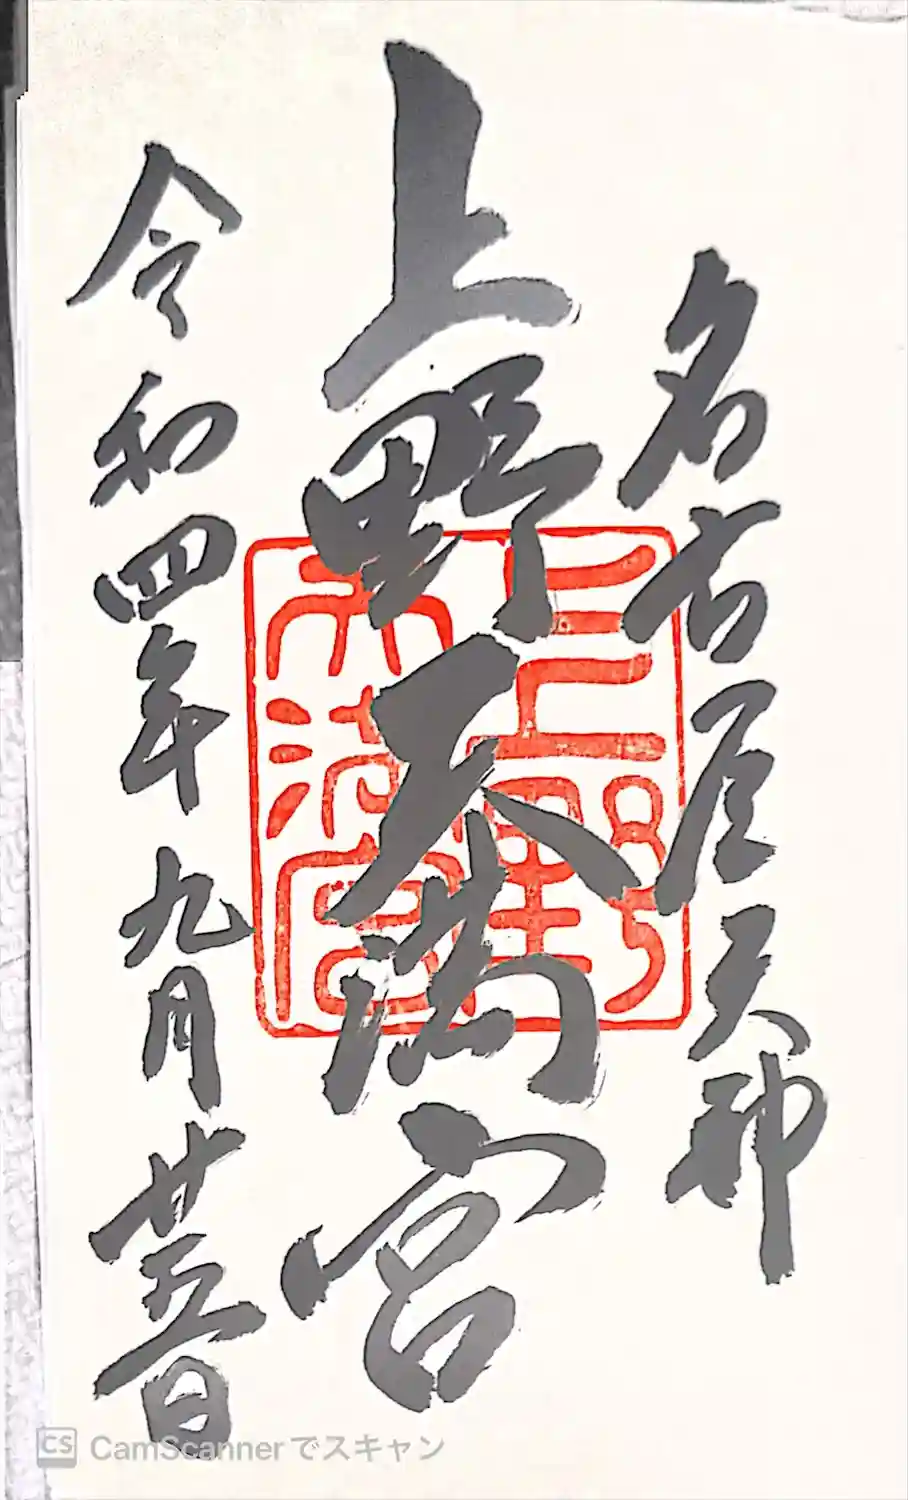 名古屋天神
上野天満宮
上野
天満宮
令和四年九月廿五日
CS CamScannerでスキャン